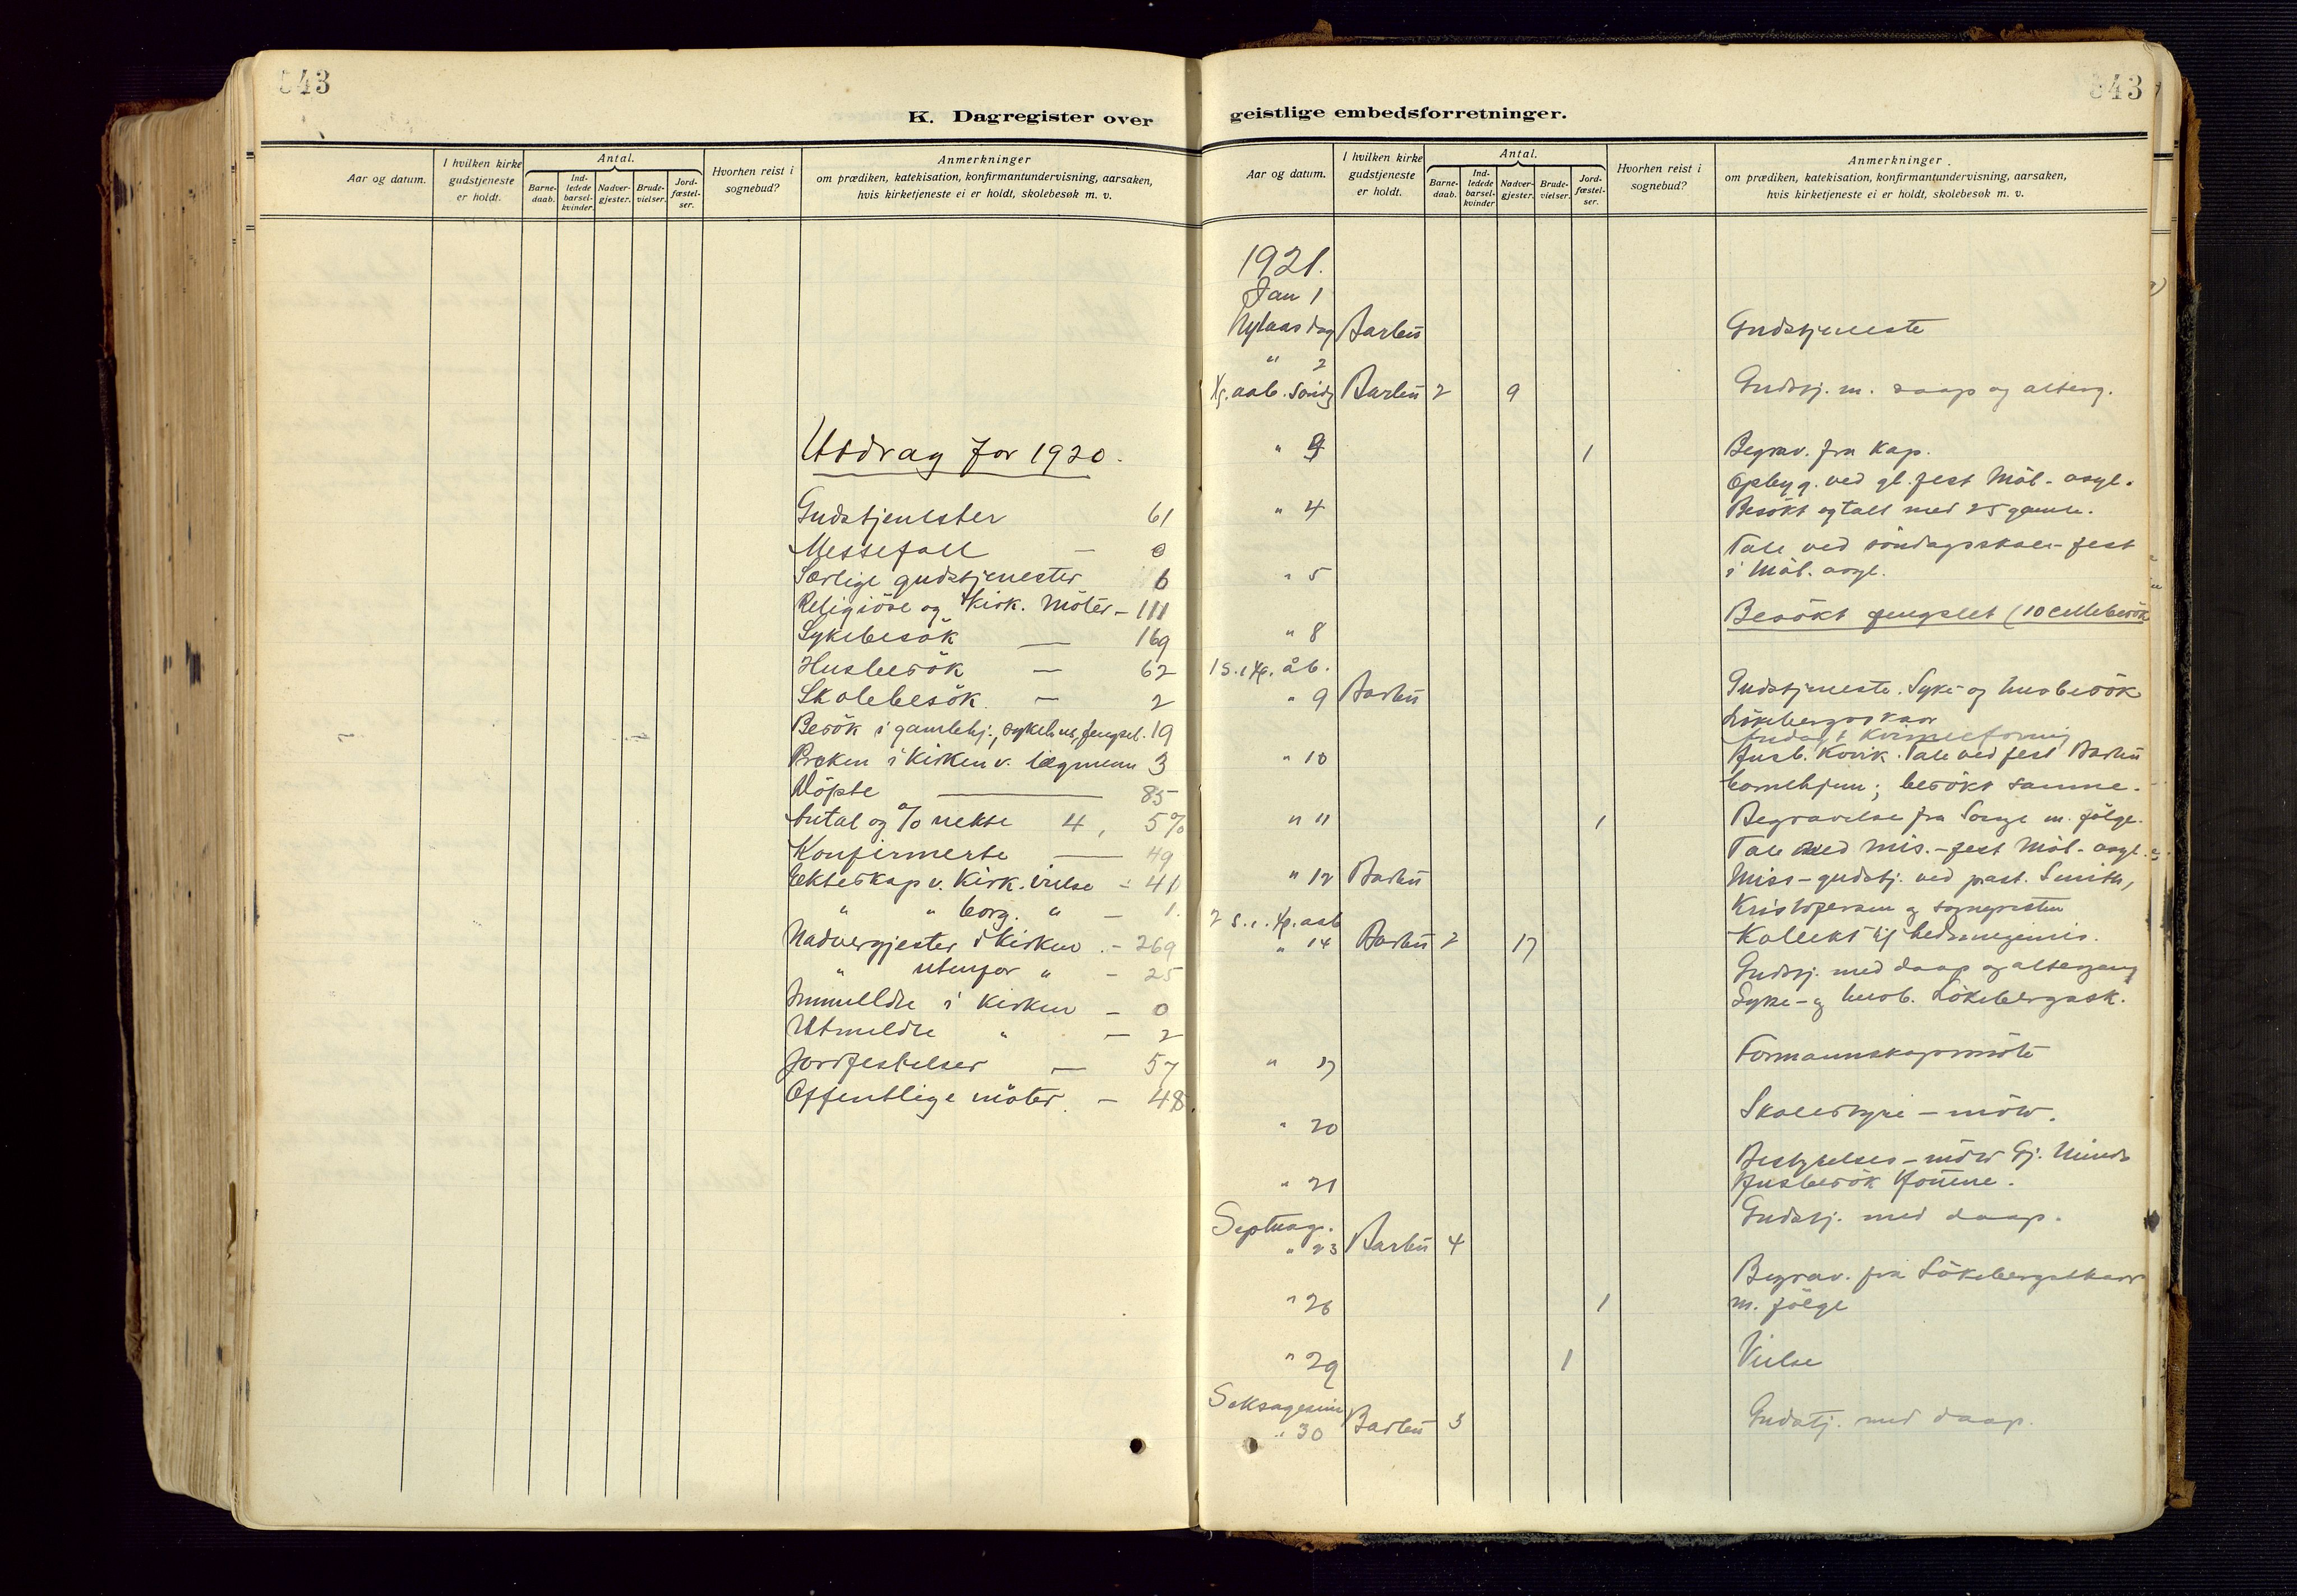 543
K. Dagregister over
Aar og datum.
I hvilken kirke gudstjeneste er holdt.
Antal.
Barne-daab.
Ind-ledede barsel-kvinder.
Nadver-gjester.
Brude-vielser.
Jord-fæstel-ser.
Hvorhen reist i sognebud?
Anmerkninger
om prædiken, katekisation, konfirmantundervisning, aarsaken,
hvis kirketjeneste ei er holdt, skolebesøk m. v.
Utdrag for 1920.
Gudstjenester 61
Messefall — 0
Særlige gudstjenester 6
Religiöse og kirk. möter — 111
Sykebesök — 169
Husbesök — 62
Skolebesök — 2
Besök i gamlehj., sykehus, fengsel. 19
Preken i kirken v. lægmenn 3
Döpte — 85
Antal og % uekte 4, 5%
Konfirmerte — 49
Ekteskap v. kirk. vielse — 41
" " borg. " — 1.
Nadvergjester i kirken — 269
" utenfor " — 25
Innmeldte i kirken — 0
Utmeldte " — 2
Jordfestelser — 57
Offentlige möter — 48.
543
geistlige embedsforretninger.
Aar og datum.
I hvilken kirke gudstjeneste er holdt.
Antal.
Barne-daab.
Ind-ledede barsel-kvinder
Nadver-gjester.
Brude-vielser.
Jord-fæstel-ser.
Hvorhen reist i sognebud?
Anmerkninger.
om prædiken, katekisation, konfirmantundervisning, aarsaken,
hvis kirketjeneste ei er holdt, skolebesøk m. v.
1921.
Jan 1
Nytaarsdag Barbu Gudstjeneste
" 2
Barbu 2 9 Gudstj. m. daap og alterg.
" 1 Begrav. fra Kap.
Opbyg. ved gl. fest Mål. asyl.
" 4 Besökt og talt med 25 gamle.
Tale ved söndagsskole-fest
" 5 i Mål. asyl.
Besökt fengslet (10 cellebesök
" 8
1 s. e. Kr. åb.
" 9 Barbu Gudstjeneste. Syke- og husbesök
Lökebergsskar
" 10 Husb. Kovik. Tale ved fest Barbu
barnehjem; besökt samme.
" 11 1 Begravelse fra Songe m. fölge.
Tale ved mis.-fest Mål. asyl.
" 12 Barbu Miss-gudstj. ved past. Smith,
Kristofersen og sognepresten
2 s. e. Kr. aab Kollekt til hedningemis.
" 14 Barbu 2 17
Gudstj. med daap og altergang
Syke- og husb. Lökebergssk.
" 17 Formannskapsmöte
" 20 Skolestyre-möte.
Bestyrelses-möte Gj. Minde
" 21 Husbesök
Septuag. Gudstj. med daap.
" 23 Barbu 4
Begrav. fra Lökebergsskar
" 26 1 m. fölge
" 29 1 Vielse
Seksagesima
" 30 Barbu 3 Gudstj. med daap.